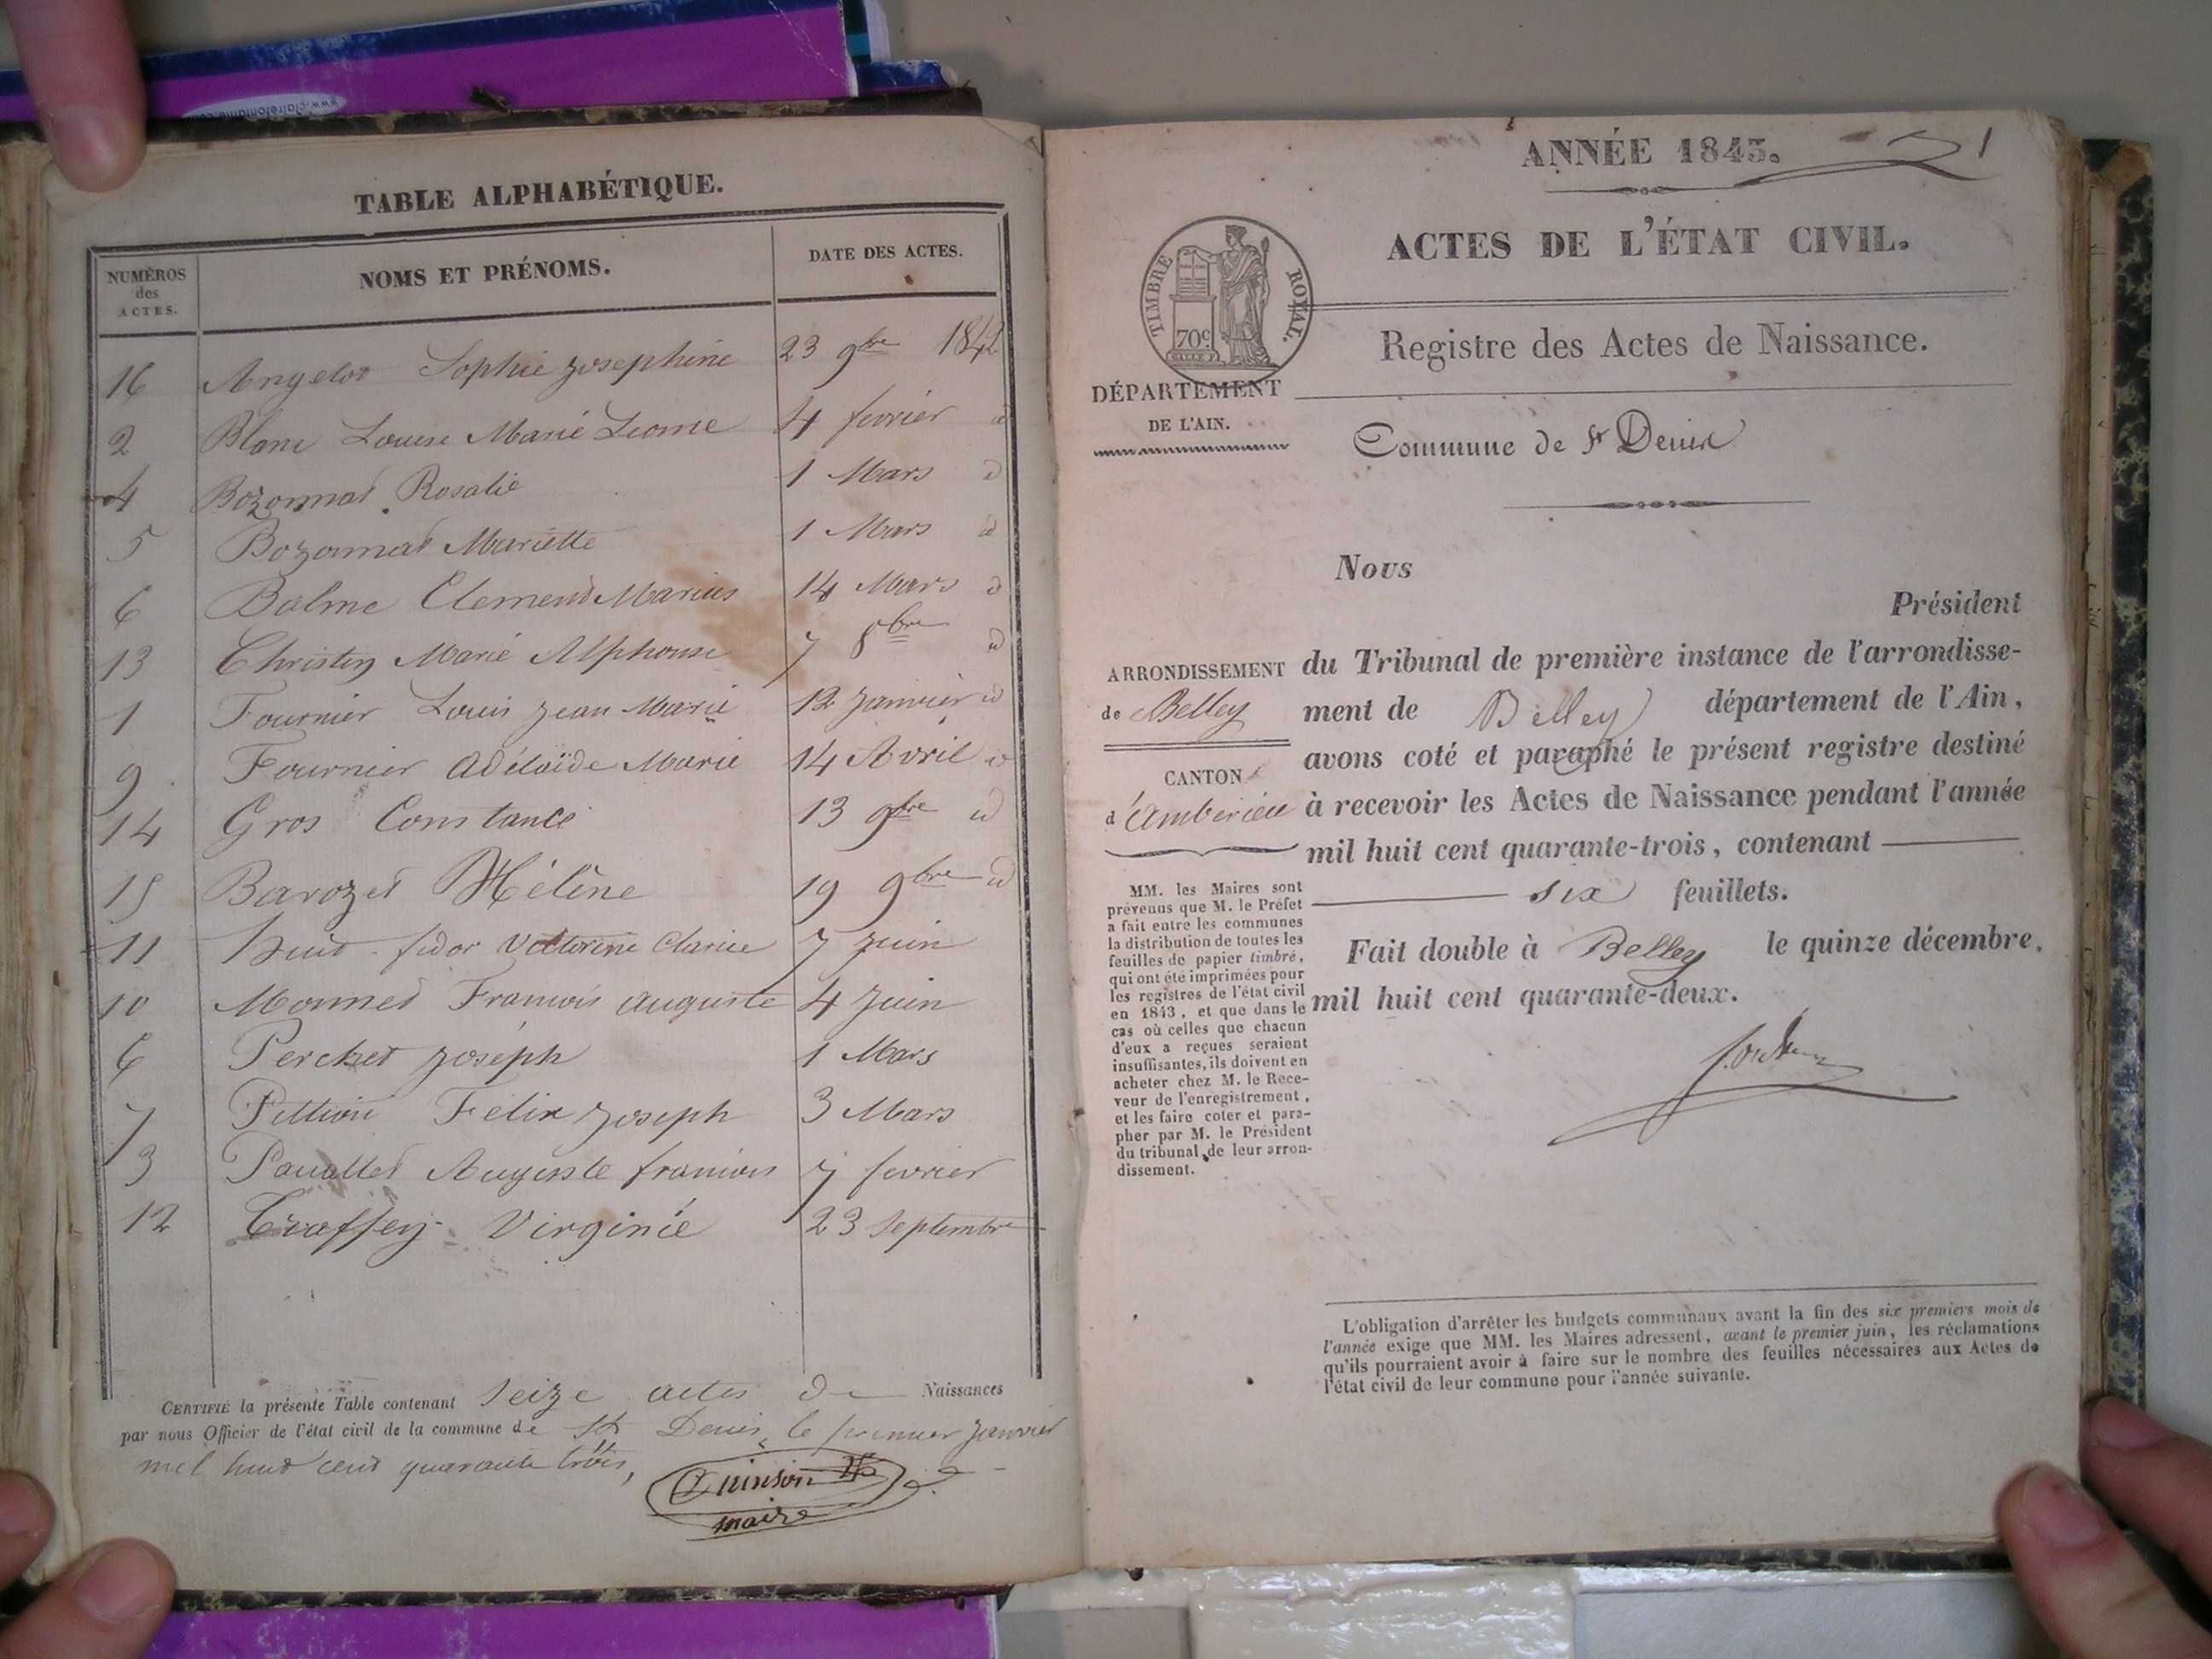 www.clairefontaine.co
TABLE ALPHABÉTIQUE.
NUMÉROS des ACTES. NOMS ET PRÉNOMS. DATE DES ACTES.
16 Angelot Sophie Josephine 23 9bre 1842
2 Blanc Louise Marie Leonie 4 fevrier id
4 Bozonnat Rosalie 1 Mars d
5 Bozonnat Mariette 1 Mars id
6 Balme Clement Marius 14 Mars d
13 Christin Marie Alphonse 7 8bre id
1 Fournier Louis Jean Marie 12 Janvier id
9 Fournier Adélaïde Marie 14 Avril id
14 Gros Constance 13 9bre id
15 Barozet Hélène 19 9bre id
11 fidor Victorine Clarice 7 Juin
10 Monnet Francois auguste 4 Juin
6 Perchet Joseph 1 Mars
7 Pittion Félix Joseph 3 Mars
3 Auguste francois 7 fevrier
12 Traffey Virginie 23 Septembre
CERTIFIÉ la présente Table contenant Seize actes de Naissances
par nous Officier de l'état civil de la commune de St Denis, le premier Janvier
mil huit cent quarante trois,
Quinson
maire
ANNÉE 1843. 1
ACTES DE L'ÉTAT CIVIL.
TIMBRE ROYAL.
70c
Registre des Actes de Naissance.
DÉPARTEMENT
DE L'AIN.
Commune de St Denis
Nous
Président
ARRONDISSEMENT
de Belley
CANTON
d'Ambérieu
MM. les Maires sont
prévenus que M. le Préfet
a fait entre les communes
la distribution de toutes les
feuilles de papier timbré,
qui ont été imprimées pour
les registres de l'état civil
en 1843, et que dans le
cas où celles que chacun
d'eux a reçues seraient
insuffisantes, ils doivent en
acheter chez M. le Rece-
veur de l'enregistrement,
et les faire coter et para-
pher par M. le Président
du tribunal de leur arron-
dissement.
du Tribunal de première instance de l'arrondisse-
ment de Belley département de l'Ain,
avons coté et paraphé le présent registre destiné
à recevoir les Actes de Naissance pendant l'année
mil huit cent quarante-trois, contenant
six feuillets.
Fait double à Belley le quinze décembre,
mil huit cent quarante-deux.
L'obligation d'arrêter les budgets communaux avant la fin des six premiers mois de
l'année exige que MM. les Maires adressent, avant le premier juin, les réclamations
qu'ils pourraient avoir à faire sur le nombre des feuilles nécessaires aux Actes de
l'état civil de leur commune pour l'année suivante.